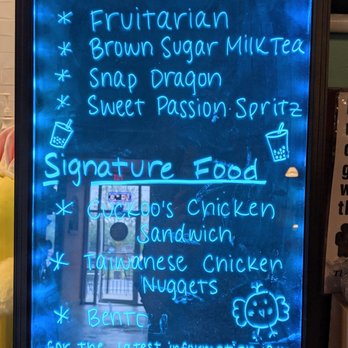 * Fruitarian
* Brown Sugar Milk Tea
* Snap Dragon
* Sweet Passion Spritz
Signature Food
* Cuckoo's Chicken
Sandwich
* Taiwanese Chicken
Nuggets
* Bento
for the latest information